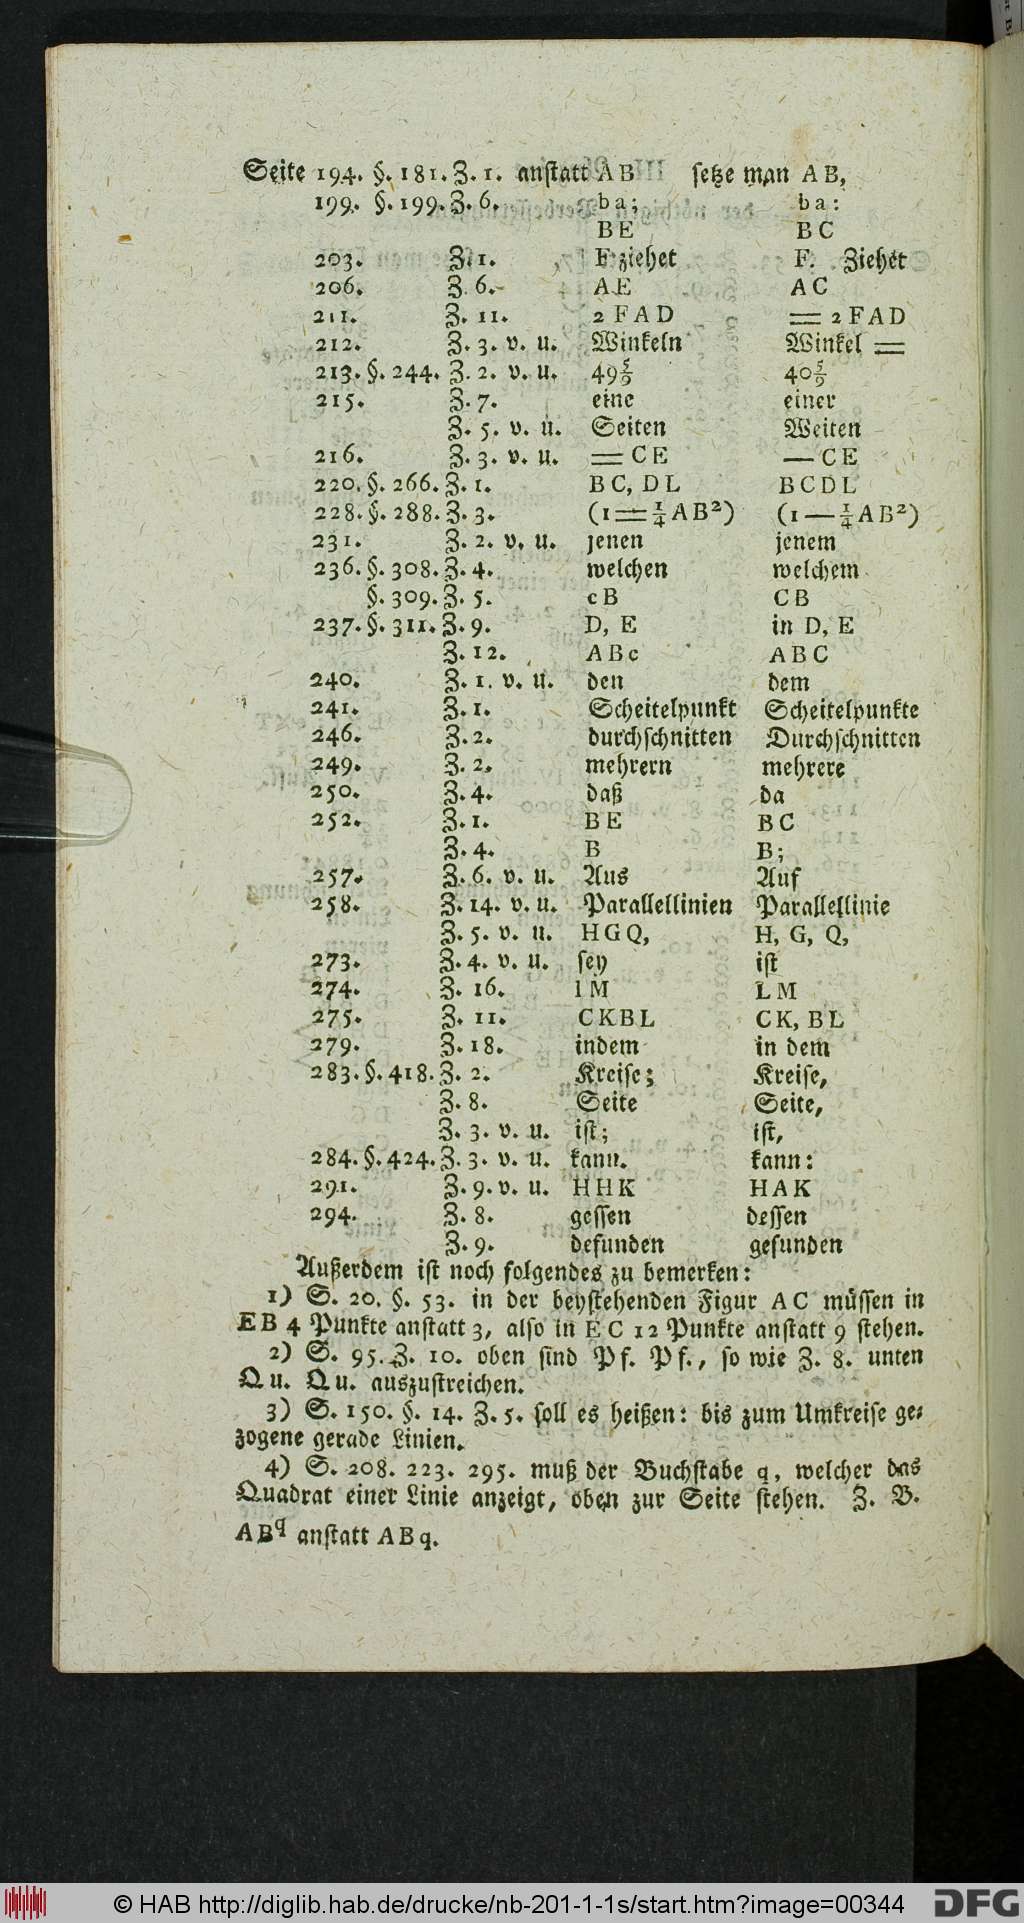 Seite 194. §. 181. Z. 1. anstatt AB setze man AB,
199. §. 199. Z. 6. ba; ba:
BE BC
203. Z. 1. F ziehet F. Ziehet
206. Z. 6. AE AC
211. Z. 11. 2 FAD = 2 FAD
212. Z. 3. v. u. Winkeln Winkel =
213. §. 244. Z. 2. v. u. 49 5/9 40 5/9
215. Z. 7. eine einer
Z. 5. v. u. Seiten Weiten
216. Z. 3. v. u. = CE — CE
220. §. 266. Z. 1. BC, DL BCDL
228. §. 288. Z. 3. (1 = ¼ AB²) (1 — ¼ AB²)
231. Z. 2. v. u. jenen jenem
236. §. 308. Z. 4. welchen welchem
§. 309. Z. 5. cB CB
237. §. 311. Z. 9. D, E in D, E
Z. 12. ABc ABC
240. Z. 1. v. u. den dem
241. Z. 1. Scheitelpunkt Scheitelpunkte
246. Z. 2. durchschnitten Durchschnitten
249. Z. 2. mehrern mehrere
250. Z. 4. daß da
252. Z. 1. BE BC
Z. 4. B B;
257. Z. 6. v. u. Aus Auf
258. Z. 14. v. u. Parallellinien Parallellinie
Z. 5. v. u. HGQ, H, G, Q,
273. Z. 4. v. u. sey ist
274. Z. 16. lM LM
275. Z. 11. CKBL CK, BL
279. Z. 18. indem in dem
283. §. 418. Z. 2. Kreise; Kreise,
Z. 8. Seite Seite,
Z. 3. v. u. ist; ist,
284. §. 424. Z. 3. v. u. kann. kann:
291. Z. 9. v. u. HHK HAK
294. Z. 8. gessen dessen
Z. 9. defunden gefunden
Außerdem ist noch folgendes zu bemerken:
1) S. 20. §. 53. in der beystehenden Figur AC müssen in
EB 4 Punkte anstatt 3, also in EC 12 Punkte anstatt 9 stehen.
2) S. 95. Z. 10. oben sind Pf. Pf., so wie Z. 8. unten
Qu. Qu. auszustreichen.
3) S. 150. §. 14. Z. 5. soll es heißen: bis zum Umkreise ge-
zogene gerade Linien.
4) S. 208. 223. 295. muß der Buchstabe q, welcher das
Quadrat einer Linie anzeigt, oben zur Seite stehen. Z. B.
AB^q anstatt ABq.
© HAB http://diglib.hab.de/drucke/nb-201-1-1s/start.htm?image=00344 DFG